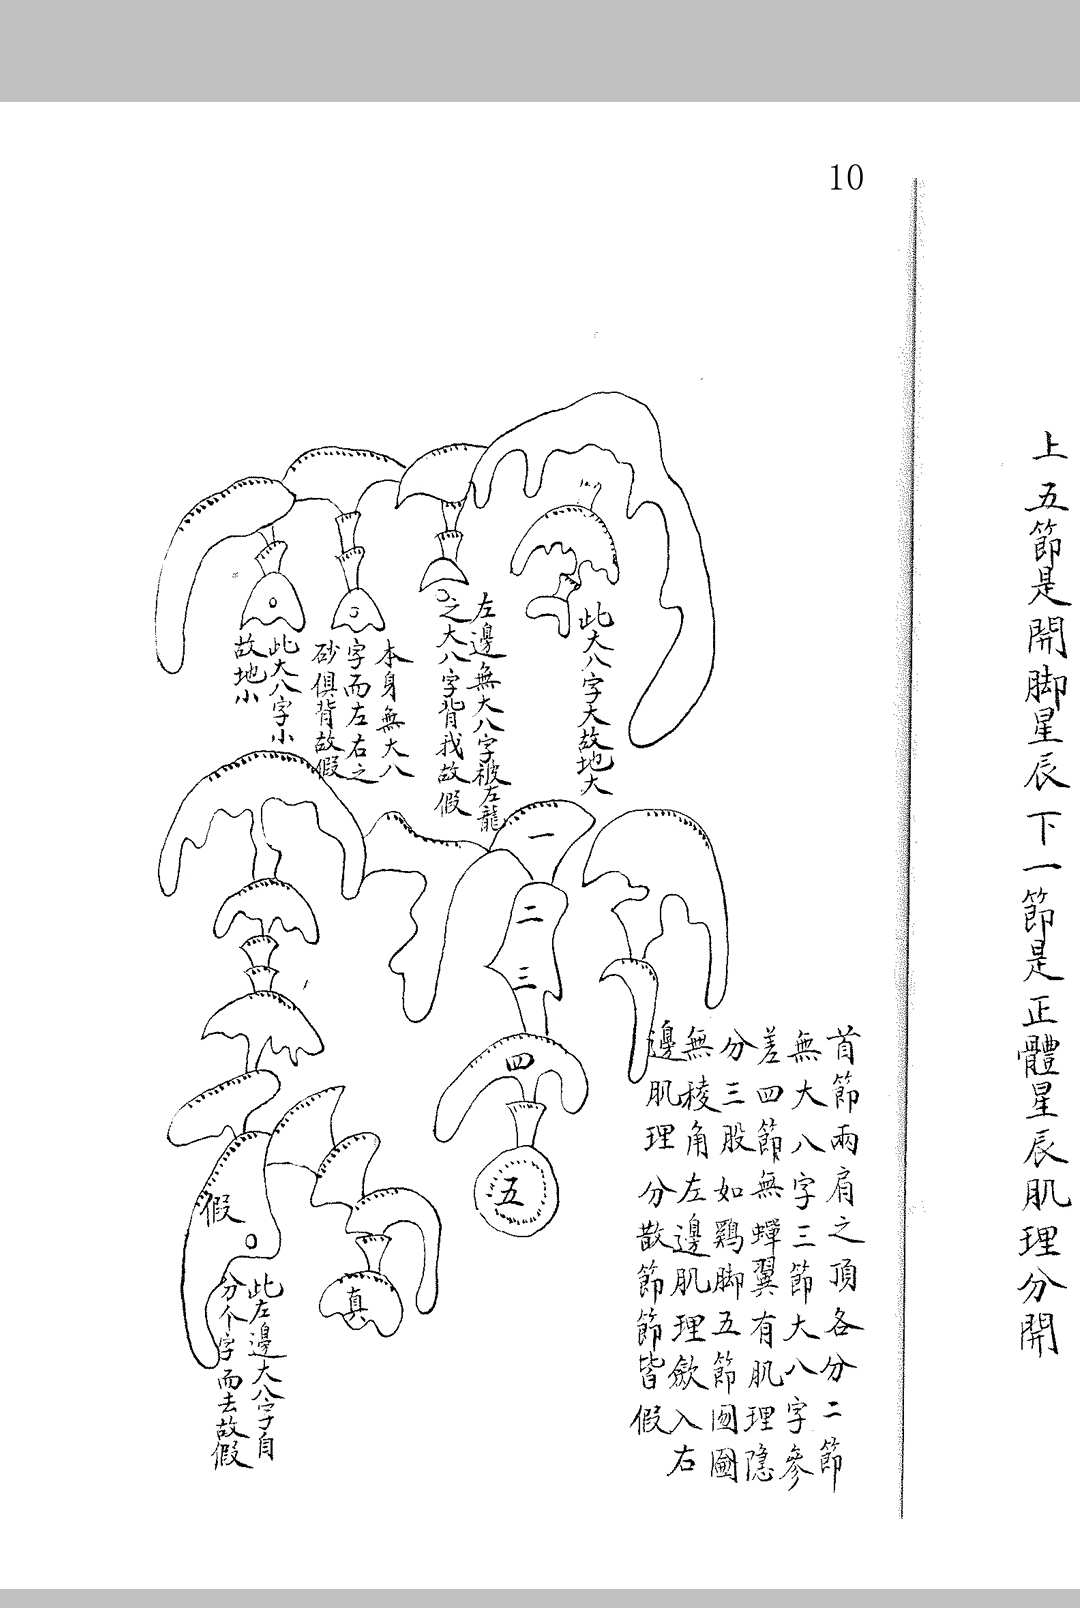 10
上五節是開脚星辰下一節是正體星辰肌理分開
此大八字大故地大
左邊無大八字被左龍
之大八字背我故假
本身無大八
字而左右之
砂俱背故假
此大八字小
故地小
一
二
三
四
五
首節兩肩之頂各分二節
無大八字三節大八字參
差四節無蟬翼有肌理隐
分三股如鷄脚五節囫圇
無稜角左邊肌理歛入右
邊肌理分散節節皆假
真
假
此左邊大八字自
分个字而去故假